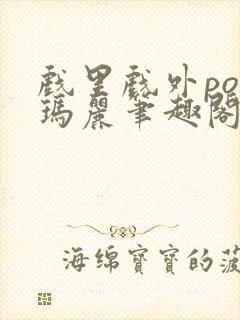 戲里戲外po
瑪麗筆趣閣
海绵寶寶的菠